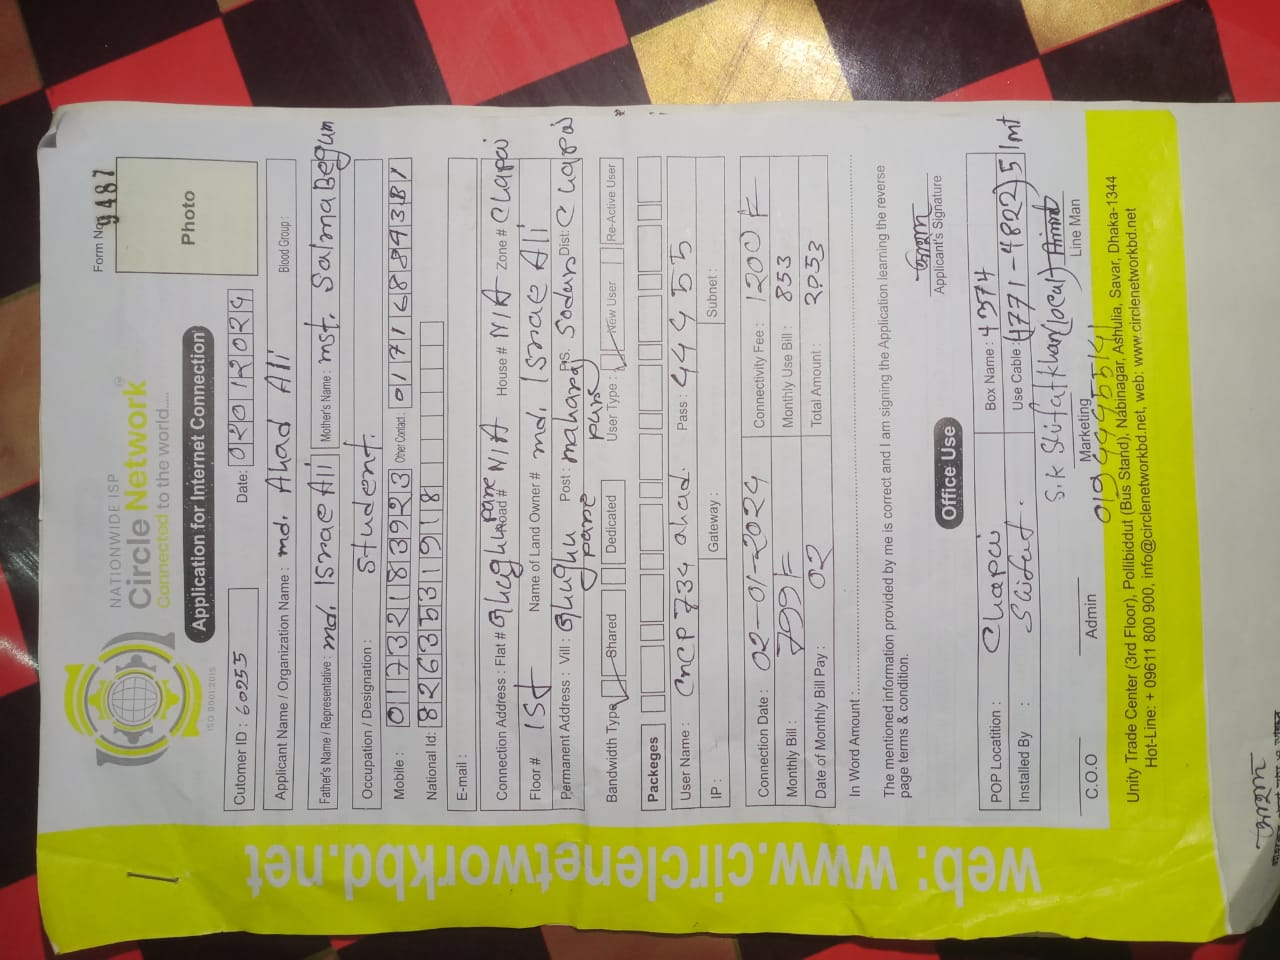 Form No. 9487
NATIONWIDE ISP
Circle Network™
Connected to the world.....
ISO 9001:2015
Photo
Application for Internet Connection
Cutomer ID : 60255 Date: 02012024
Applicant Name / Organization Name : md. Ahad Ali Blood Group :
Father's Name / Representative : md. Israe Ali Mother's Name : mst. Salma Begum
Occupation / Designation : Student.
Mobile : 01732183923 Other Contact :
National Id: 8263531918
E-mail :
Connection Address : Flat # ghughu pare Road # N/A House # N/A Zone # Chapai
Floor # 1st Name of Land Owner # md. Israe Ali
Permanent Address : Vill : ghughu pare Post : PS. Sodar Dist: Chapai
Bandwidth Type Shared Dedicated User Type : New User Re-Active User
Packeges
User Name : cncp734 ahad. Pass : 444455
IP : Gateway : Subnet :
Connection Date : 02-01-2024 Connectivity Fee : 1200 F
Monthly Bill : 799 F Monthly Use Bill : 853
Date of Monthly Bill Pay : 02 Total Amount : 2053
In Word Amount :
The mentioned information provided by me is correct and I am signing the Application learning the reverse
page terms & condition.
Applicant's Signature
Office Use
POP Locatition : Chapai Box Name : 4574
Installed By : Sifat. Use Cable : (4771-4822) 51mt
S.K Shifat khan (local)
C.O.O Admin Marketing Line Man
Unity Trade Center (3rd Floor), Pollibiddut (Bus Stand), Nabinagar, Ashulia, Savar, Dhaka-1344
Hot-Line: + 09611 800 900, info@circlenetworkbd.net, web: www.circlenetworkbd.net
web: www.circlenetworkbd.net